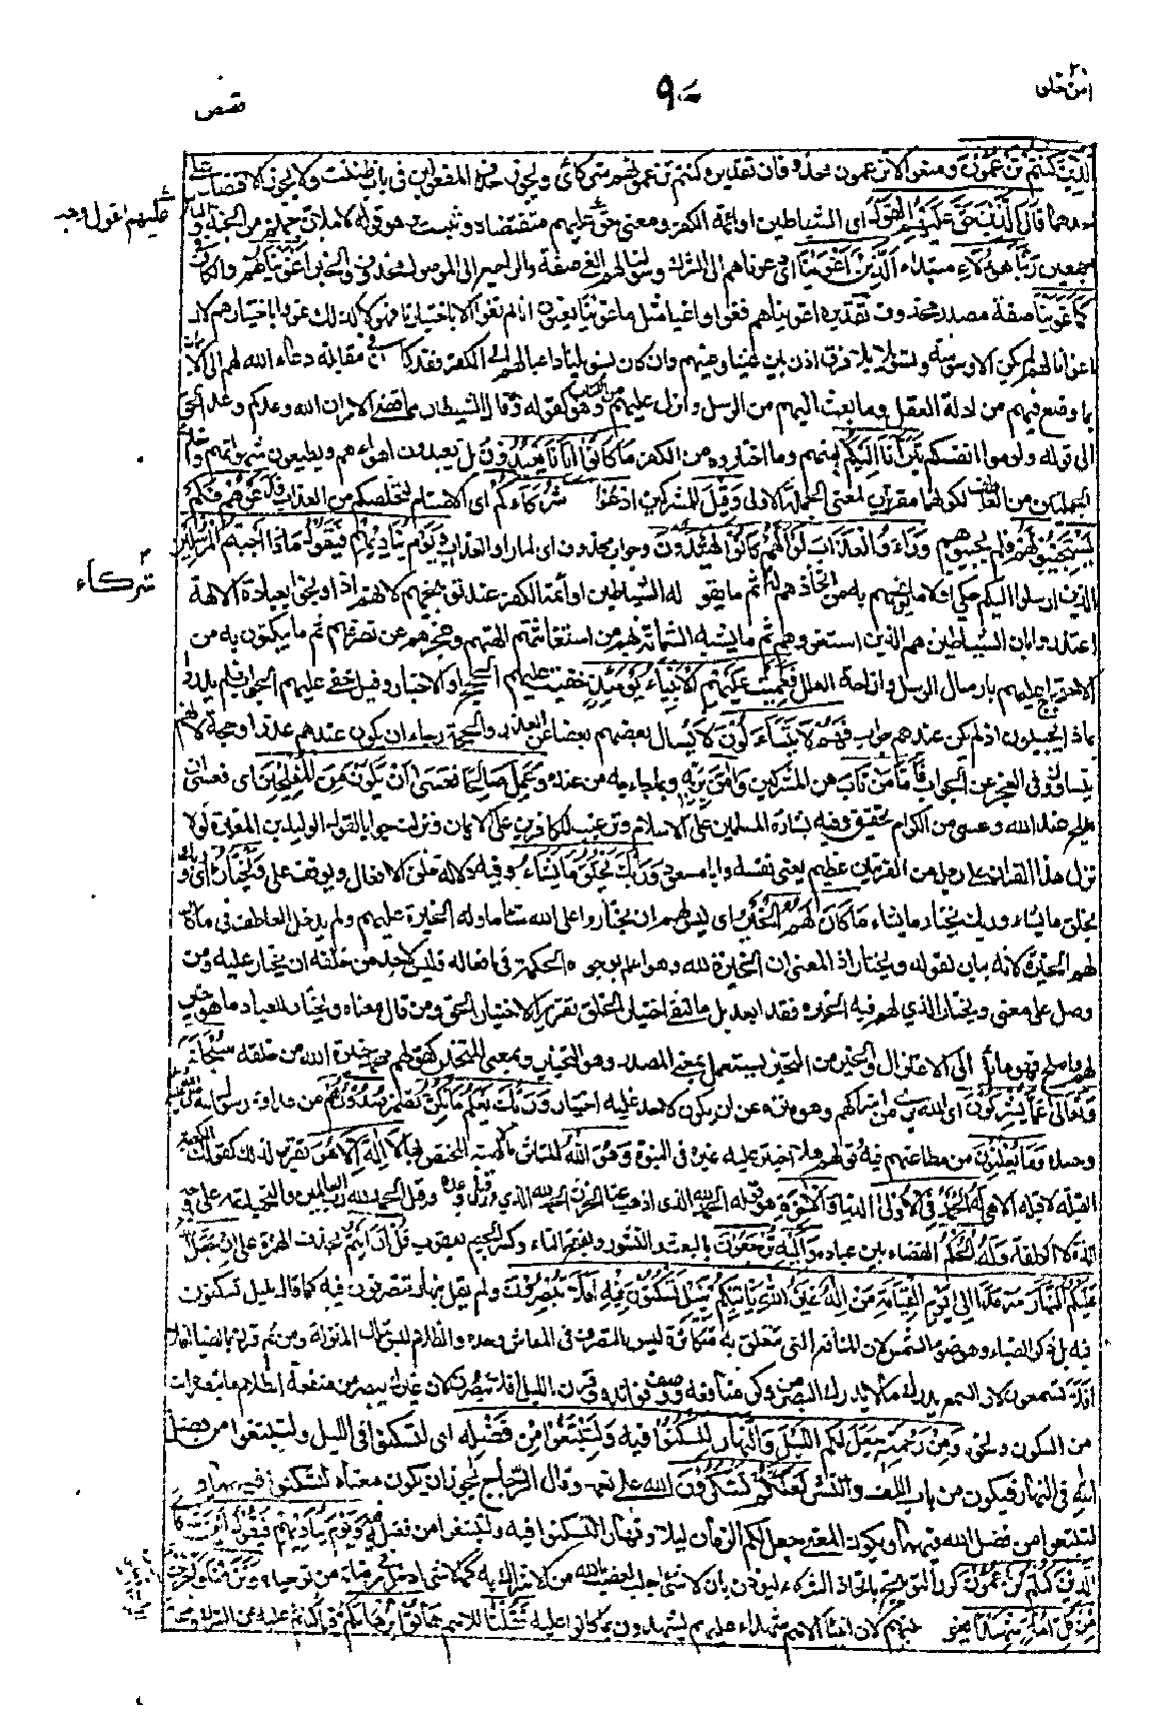 امن خلق
٩٠
قصص
الَّذِينَ كُنتُمْ تَزْعُمُونَ ومفعولا تزعمون محذوفان تقديره كنتم تزعمونهم شركائي ويجوز حذف المفعولين في باب ظننت ولا يجوز الاقتصار على
احدهما قَالَ الَّذِينَ حَقَّ عَلَيْهِمُ الْقَوْلُ اى الشياطين او ائمة الكفر ومعنى حق عليهم مقتضاه وثبت وهو قوله لاملان جهنم من الجنة والناس
عليهم القول وجب
اجمعين رَبَّنَا هَؤُلَاءِ مبتداء الَّذِينَ أَغْوَيْنَا اى دعوناهم الى الشرك وسولنا لهم الغى صفة والراجع الى الموصول محذوف والخبر أَغْوَيْنَاهُمْ والكاف في
كَمَا غَوَيْنَا صفة مصدر محذوف تقديره اغويناهم فغووا غيا مثل ما غوينا يعنون انا لم نغو الا باختيارنا فهؤلاء كذلك غووا باختيارهم لان
اغوائنا لهم لم يكن الا وسوسة وتسويلا فلا فرق اذن بين غينا وغيهم وان كان تسويلنا داعيا لهم الى الكفر فقد كان في مقابلة دعاء الله لهم الى الايمان
بما وضع فيهم من ادلة العقل وما بعث اليهم من الرسل وانزل عليهم من الكتب وهو كقوله وقال الشيطان لما قضي الامر ان الله وعدكم وعد الحق
الى قوله ولوموا انفسكم تَبَرَّأْنَا إِلَيْكَ منهم ومما اختاروه من الكفر مَا كَانُوا إِيَّانَا يَعْبُدُونَ بل يعبدون اهواءهم ويطيعون شهواتهم واخلاء
الجملتين من العاطف لكونهما مقررتين لمعنى الجملة الاولى وَقِيلَ للمشركين ادْعُوا شُرَكَاءَكُمْ اى الاصنام لتخلصكم من العذاب فَدَعَوْهُمْ فَلَمْ
يَسْتَجِيبُوا لَهُمْ فلم يجيبوهم وَرَأَوُا الْعَذَابَ لَوْ أَنَّهُمْ كَانُوا يَهْتَدُونَ وجواب لو محذوف اى لما راوا العذاب وَيَوْمَ يُنَادِيهِمْ فَيَقُولُ مَاذَا أَجَبْتُمُ الْمُرْسَلِينَ
شركاء
الذين ارسلوا اليكم حكى اولا ما يوبخهم به من اتخاذهم له شركاء ثم ما يقوله الشياطين او ائمة الكفر عند توبيخهم لانهم اذا وبخوا بعبادة الالهة
اعتذروا بان الشياطين هم الذين استغووهم ثم ما يشبه الشماتة بهم من استغاثتهم الهتهم وعجزهم عن نصرتهم ثم ما يبكتون به من
الاحتجاج عليهم بارسال الرسل وازاحة العلل فَعَمِيَتْ عَلَيْهِمُ الْأَنْبَاءُ يَوْمَئِذٍ خفيت عليهم الحجج او الاخبار وقيل خفي عليهم الجواب فلم يدروا
بماذا يجيبون اذ لم يكن عندهم جواب فَهُمْ لَا يَتَسَاءَلُونَ لا يسال بعضهم بعضا عن العذر والحجة رجاء ان يكون عندهم عذر او حجة لانهم
يتساوون في العجز عن الجواب فَأَمَّا مَنْ تَابَ من المشركين وَآمَنَ بربه وبما جاء به من عنده وَعَمِلَ صَالِحًا فَعَسَى أَنْ يَكُونَ مِنَ الْمُفْلِحِينَ اى فعسى ان
يفلح عند الله وعسى من الكرام تحقيق وفيه بشارة للمسلمين على الاسلام وترغيب للكافرين على الايمان ونزلت جوابا لقول الوليد بن المغيرة لولا
نزل هذا القران على رجل من القريتين عظيم يعنى نفسه وابا مسعود وَرَبُّكَ يَخْلُقُ مَا يَشَاءُ وفيه دلالة خلق الافعال ويوقف على وَيَخْتَارُ اى وربك
يخلق ما يشاء وربك يختار ما يشاء مَا كَانَ لَهُمُ الْخِيَرَةُ اى ليس لهم ان يختاروا على الله شيئا ما وله الخيرة عليهم ولم يدخل العاطف في ما كان
لهم الخيرة لانه بيان لقوله ويختار اذ المعنى ان الخيرة لله وهو اعلم بوجوه الحكمة في افعاله فليس لاحد من خلقه ان يختار عليه ومن
وصل على معنى ويختار الذي لهم فيه الخيرة فقد ابعد بل ما لنفي اختيار الخلق تقريرا لاختيار الحق ومن قال معناه ويختار للعباد ما هو خير
لهم واصلح فهو مائل الى الاعتزال والخيرة من التخير يستعمل بمعنى المصدر وهو التخير وبمعنى المتخير كقولهم محمد خيرة الله من خلقه سُبْحَانَ اللَّهِ
وَتَعَالَى عَمَّا يُشْرِكُونَ اى الله برئ من اشراكهم وهو منزه عن ان يكون لاحد عليه اختيار وَرَبُّكَ يَعْلَمُ مَا تُكِنُّ تضمر صُدُورُهُمْ من عداوة رسول الله صلى الله عليه
وحسده وَمَا يُعْلِنُونَ من مطاعنهم فيه وقولهم هلا اختير عليه غيره في النبوة وَهُوَ اللَّهُ المستاثر بالالهية المختص بها لَا إِلَهَ إِلَّا هُوَ تقرير لذلك كقولك الكعبة
القبلة لا قبلة الا هي لَهُ الْحَمْدُ فِي الْأُولَى الدنيا وَالْآخِرَةِ هو قوله الحمد لله الذى اذهب عنا الحزن الحمد لله الذي صدقنا وعده وقيل الحمد لله رب العالمين والتحميد ثمه على وجه
اللذة لا الكلفة وَلَهُ الْحُكْمُ القضاء بين عباده وَإِلَيْهِ تُرْجَعُونَ بالبعث والنشور وبفتح التاء وكسر الجيم يعقوب قُلْ أَرَأَيْتُمْ بحذف الهمزة على إِنْ جَعَلَ اللَّهُ
عَلَيْكُمُ النَّهَارَ سَرْمَدًا إِلَى يَوْمِ الْقِيَامَةِ مَنْ إِلَهٌ غَيْرُ اللَّهِ يَأْتِيكُمْ بِلَيْلٍ تَسْكُنُونَ فِيهِ أَفَلَا تُبْصِرُونَ ولم يقل بنهار تتصرفون فيه كما قال بليل تسكنون
فيه بل ذكر الضياء وهو ضوء الشمس لان المنافع التي تتعلق به متكاثرة ليس التصرف في المعاش وحده والظلام ليس بتلك المنزلة ومن ثم قرن بالضياء افلا
أَفَلَا تَسْمَعُونَ لان السمع يدرك ما لا يدرك البصر من ذكر منافعه ووصف فوائده وقرن بالليل افلا تبصرون لان غيرك يبصر من منفعة الظلام ما تبصره انت
من السكون ونحوه وَمِنْ رَحْمَتِهِ جَعَلَ لَكُمُ اللَّيْلَ وَالنَّهَارَ لِتَسْكُنُوا فِيهِ وَلِتَبْتَغُوا مِنْ فَضْلِهِ اى لتسكنوا في الليل ولتبتغوا من فضل
الله في النهار فيكون من باب اللف والنشر لَعَلَّكُمْ تَشْكُرُونَ الله على نعمه وقال الزجاج يجوز ان يكون معناه لتسكنوا فيهما و
لتبتغوا من فضل الله فيهما ويكون المعنى جعل لكم الزمان ليلا ونهارا لتسكنوا فيه ولتبتغوا من فضله وَيَوْمَ يُنَادِيهِمْ فَيَقُولُ أَيْنَ شُرَكَائِيَ
الَّذِينَ كُنْتُمْ تَزْعُمُونَ كرر التوبيخ باتخاذ الشركاء ليؤذن بان لا شئ اجلب لغضب الله من الاشراك به كما لا شئ ادخل في مرضاته من توحيده وَنَزَعْنَا واخرجنا
مِنْ كُلِّ أُمَّةٍ شَهِيدًا يعنى نبيهم لان انبياء الامم شهداء عليهم يشهدون بما كانوا عليه فَقُلْنَا للامم هَاتُوا بُرْهَانَكُمْ فيما كنتم عليه من الشرك